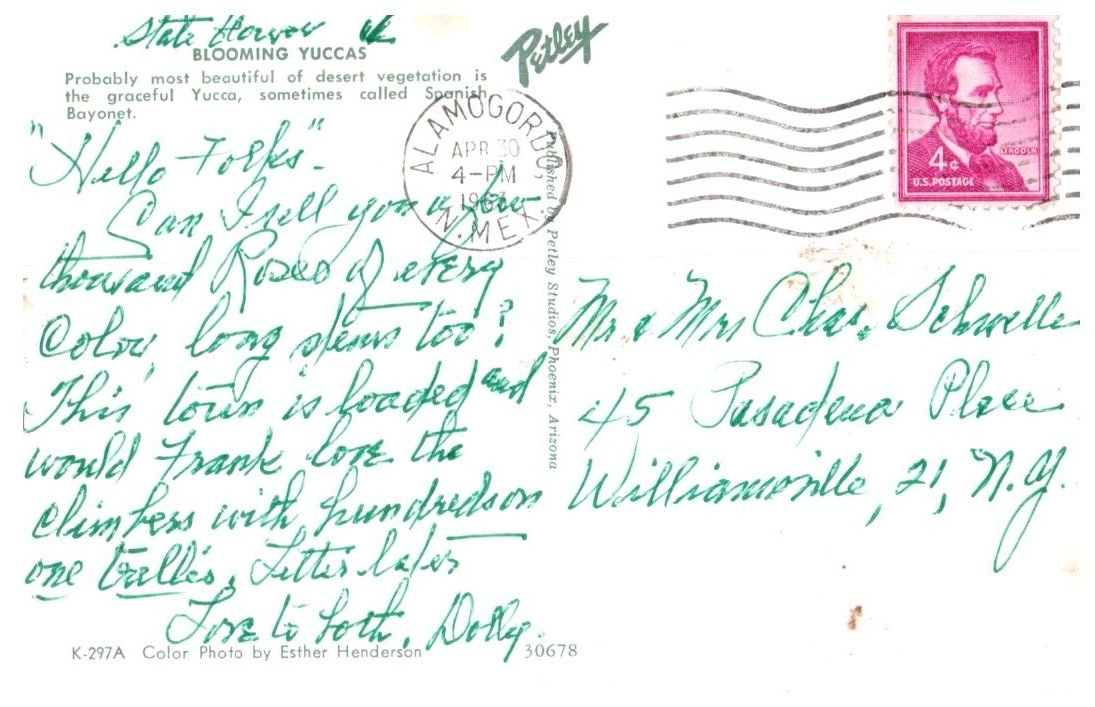 State Flower
BLOOMING YUCCAS
Probably most beautiful of desert vegetation is
the graceful Yucca, sometimes called Spanish
Bayonet.
"Hello Folks"-
Can I sell you a few
thousand Roses of every
Color, long stems too?
This town is loaded and
would Frank love the
climbers with hundreds on
one trellis. Letter later
Love to both, Dolly.
K-297A Color Photo by Esther Henderson
30678
Petley
Published by Petley Studios, Phoenix, Arizona
ALAMOGORDO,
APR 30
4-PM
N. MEX.
LINCOLN
4¢
U.S. POSTAGE
Mr & Mrs Chas. Schwelle
45 Pasadena Place
Williamsville, 21, N.Y.